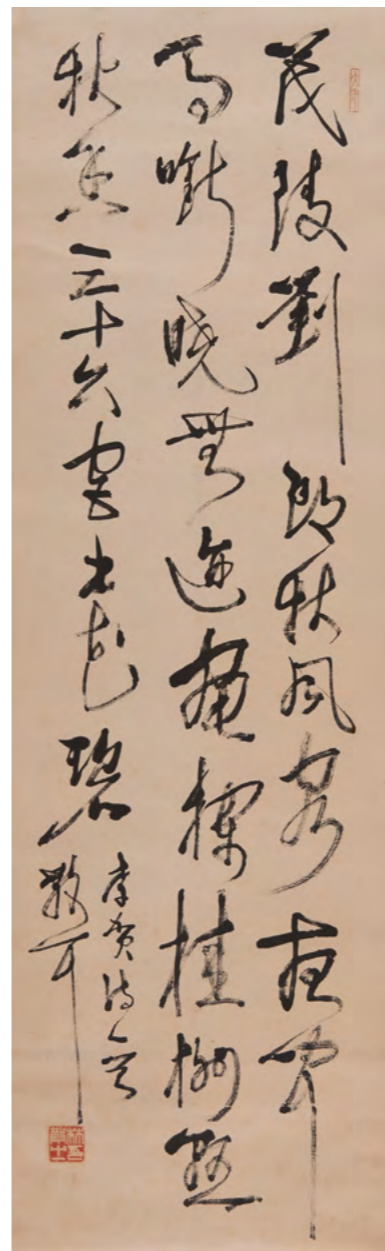 茂陵劉郎秋風客夜聞
馬嘶曉無迹畫欄桂樹懸
秋香三十六宮土花碧
李賀詩
散耳